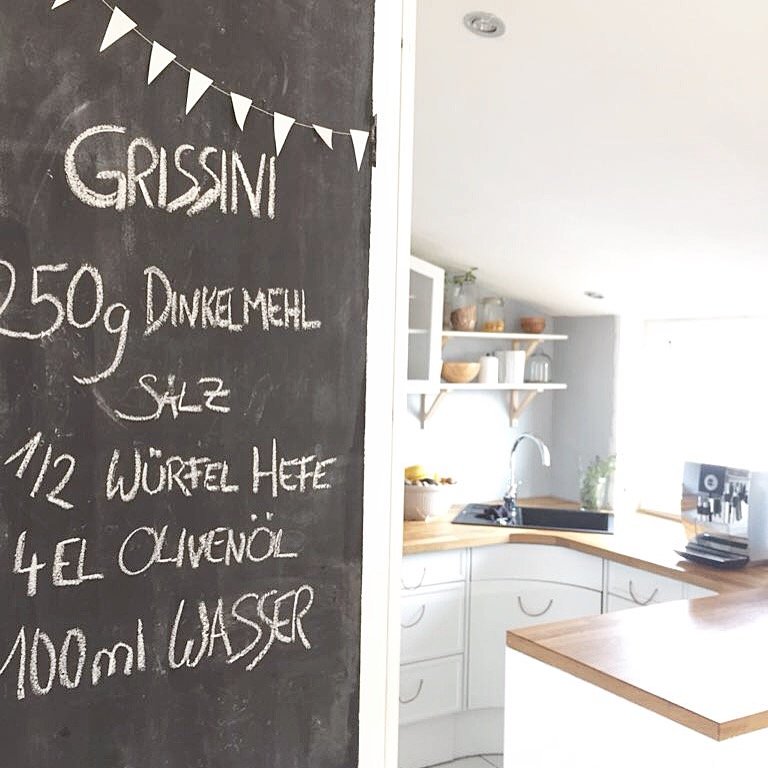 GRISSINI
250g DINKELMEHL
SALZ
1/2 WÜRFEL HEFE
4 EL OLIVENÖL
100ml WASSER